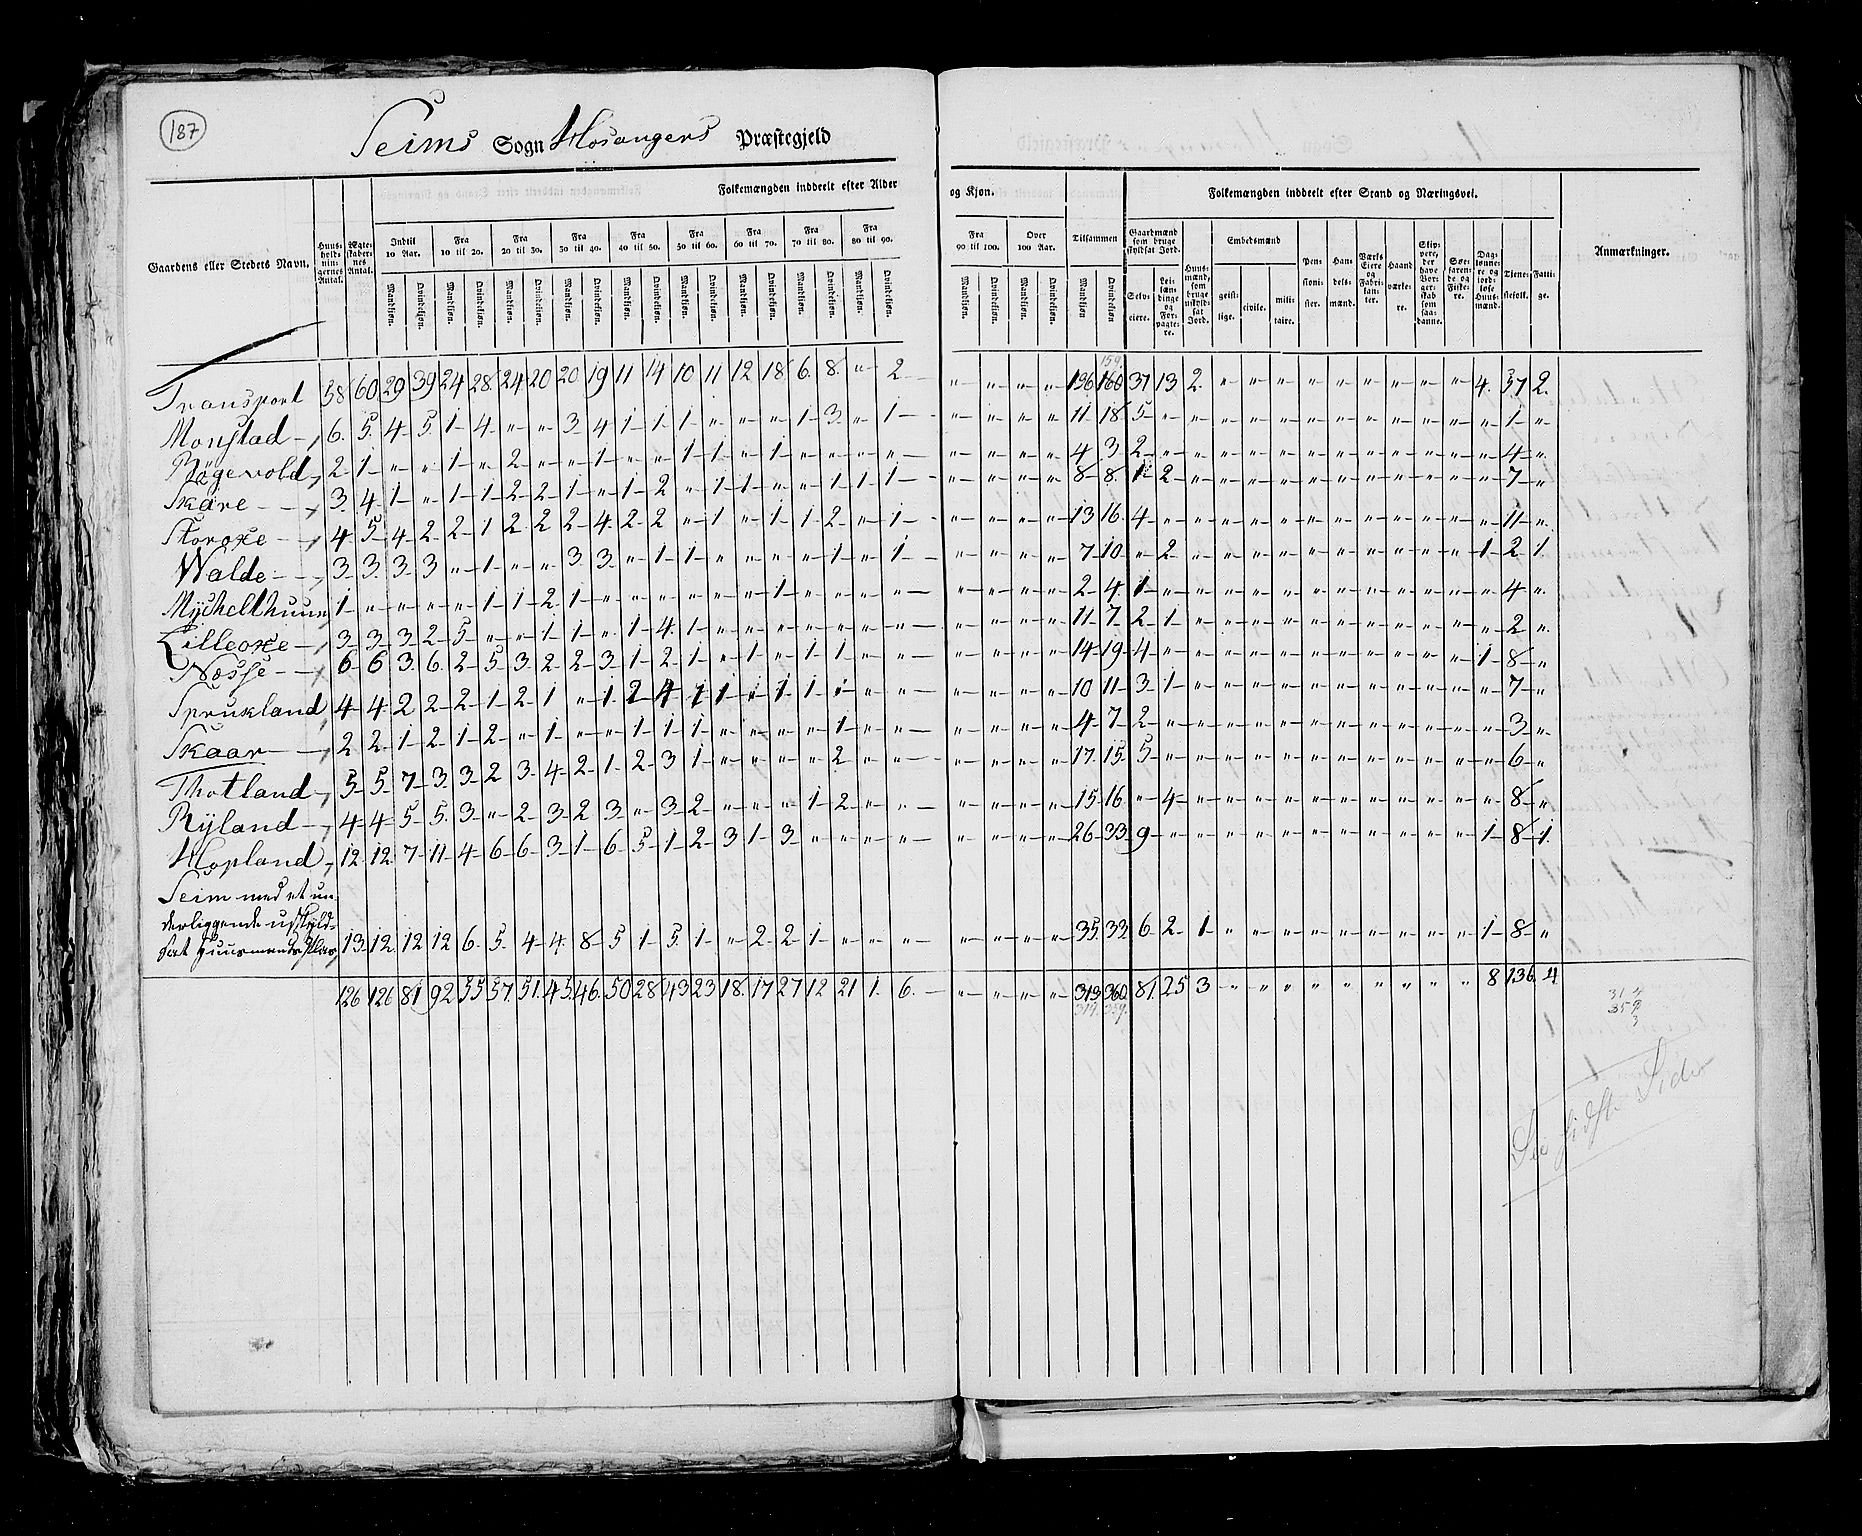 187
Seims Sogn Hosangers Præstegjeld
Gaardens eller Stedets Navn. Huusholdningernes Antal. Ægteskabernes Antal. Folkemængden inddeelt efter Alder og Kjøn. Folkemængden inddeelt efter Stand og Næringsvei. Anmærkninger.
Indtil 10 Aar. Fra 10 til 20. Fra 20 til 30. Fra 30 til 40. Fra 40 til 50. Fra 50 til 60. Fra 60 til 70. Fra 70 til 80. Fra 80 til 90. Fra 90 til 100. Over 100 Aar. Tilsammen
Gaardmænd som bruge skyldsat Jord. Huusmænd, som bruge uskyldsat Jord. Embedsmænd Pensionister. Handelsmænd. Værks Eiere og Fabrikanter. Haandværkere. Søefarende og Fiskere. Tjenestefolk. Fattige.
Mandkjøn. Qvindekjøn. Mandkjøn. Qvindekjøn. Mandkjøn. Qvindekjøn. Mandkjøn. Qvindekjøn. Mandkjøn. Qvindekjøn. Mandkjøn. Qvindekjøn. Mandkjøn. Qvindekjøn. Mandkjøn. Qvindekjøn. Mandkjøn. Qvindekjøn. Mandkjøn. Qvindekjøn. Mandkjøn. Qvindekjøn. Mandkjøn Qvindekjøn Selveiere. Leilændinge og Forpagtere. geistlige. civile. militaire.
159
Transport 58 60 29 39 24 28 24 20 20 19 11 14 10 11 12 18 6. 8. " 2 " " " " 136 160 37 13 2. " " " " " " " " " 4. 57 2.
Monstad 6. 5. 4 5. 1 4 " " 3 4 1 1 1 " " " 1 3 " 1 " " " " 11 18 5 " " " " " " " " " " " " 1 "
Bögevold 2 1 " " 1 " 2 " " 1 " " 1 1 " 1 " " " " " " " " 4 3 2 " " " " " " " " " " " " 4 "
Skäre 3. 4 1 " 1 1 2 2 1 " 1 2 " 1 1 " " 1 1 1 " " " " 8 8. 1 2 " " " " " " " " " " " 7 "
Storoxe 4 5 4 2 2 1 2 2 2 4 2 2 " 1 " 1 1 2 " 1 " " " " 13 16. 4 " " " " " " " " " " " " 11 "
Walde 3 3. 3 3 " 1 " " 3 3 " 1 1 " " " " 1 " 1 " " " " 7 10 " 2 " " " " " " " " " " 1 2 1.
Mychelthuun 1 " " " " 1 1 2 1 " " " " " " 1 " " " " " " " " 2 4 1 " " " " " " " " " " " " 4 "
Lilleoxe 3 3 3 2 5 " " 1 1 " 1 4 1 " " " " " " " " " " " 11 7 2 1 " " " " " " " " " " " 2 "
Næsse 6 6 3 6 2 5 3 2 2 3 1 2 1 " 1 " 1 1 " " " " " " 14 19 4 " " " " " " " " " " " 1 8 "
Sprukland 4 4 2 2 2 1 2 1 " 1 2 4 1 1 " 1 1 " " " " " " " 10 11 3 1 " " " " " " " " " " " 7 "
Skaar 2 2 1 2 1 2 " 1 " " 1 1 1 " " " " 1 " " " " " " 4 7 2 " " " " " " " " " " " " 3 "
Thotland 5 5 7 3 3 2 3 4 2 1 2 3 1 " " " " 2 " " " " " " 17 15 5 " " " " " " " " " " " " 6 "
Ryland 4 4 5 5 3 " 2 3 2 3 " 3 2 " " " 1 2 " " " " " " 15 16 " 4 " " " " " " " " " " " 8 "
Hopland 12 12 7 11 4 6 6 3 1 6 5 1 2 3 1 3 " " " " " " " " 26 33 9 " " " " " " " " " " " 1 8 1.
Seim med et un
derliggende uskyld
sat Huusmands Plas 13. 12. 12 12 6. 5. 4 4. 8 5 1 5. 1 " 2 2 1 " " " " " " " 35. 33. 6 2 1 " " " " " " " " " 1 8 "
126 126 81 92 55 57. 51. 45 46. 50 28 43 23 18. 17 27 12 21 1. 6. " " " " 313 360 81. 25 3 " " " " " " " " " 8 136 4
314. 359.